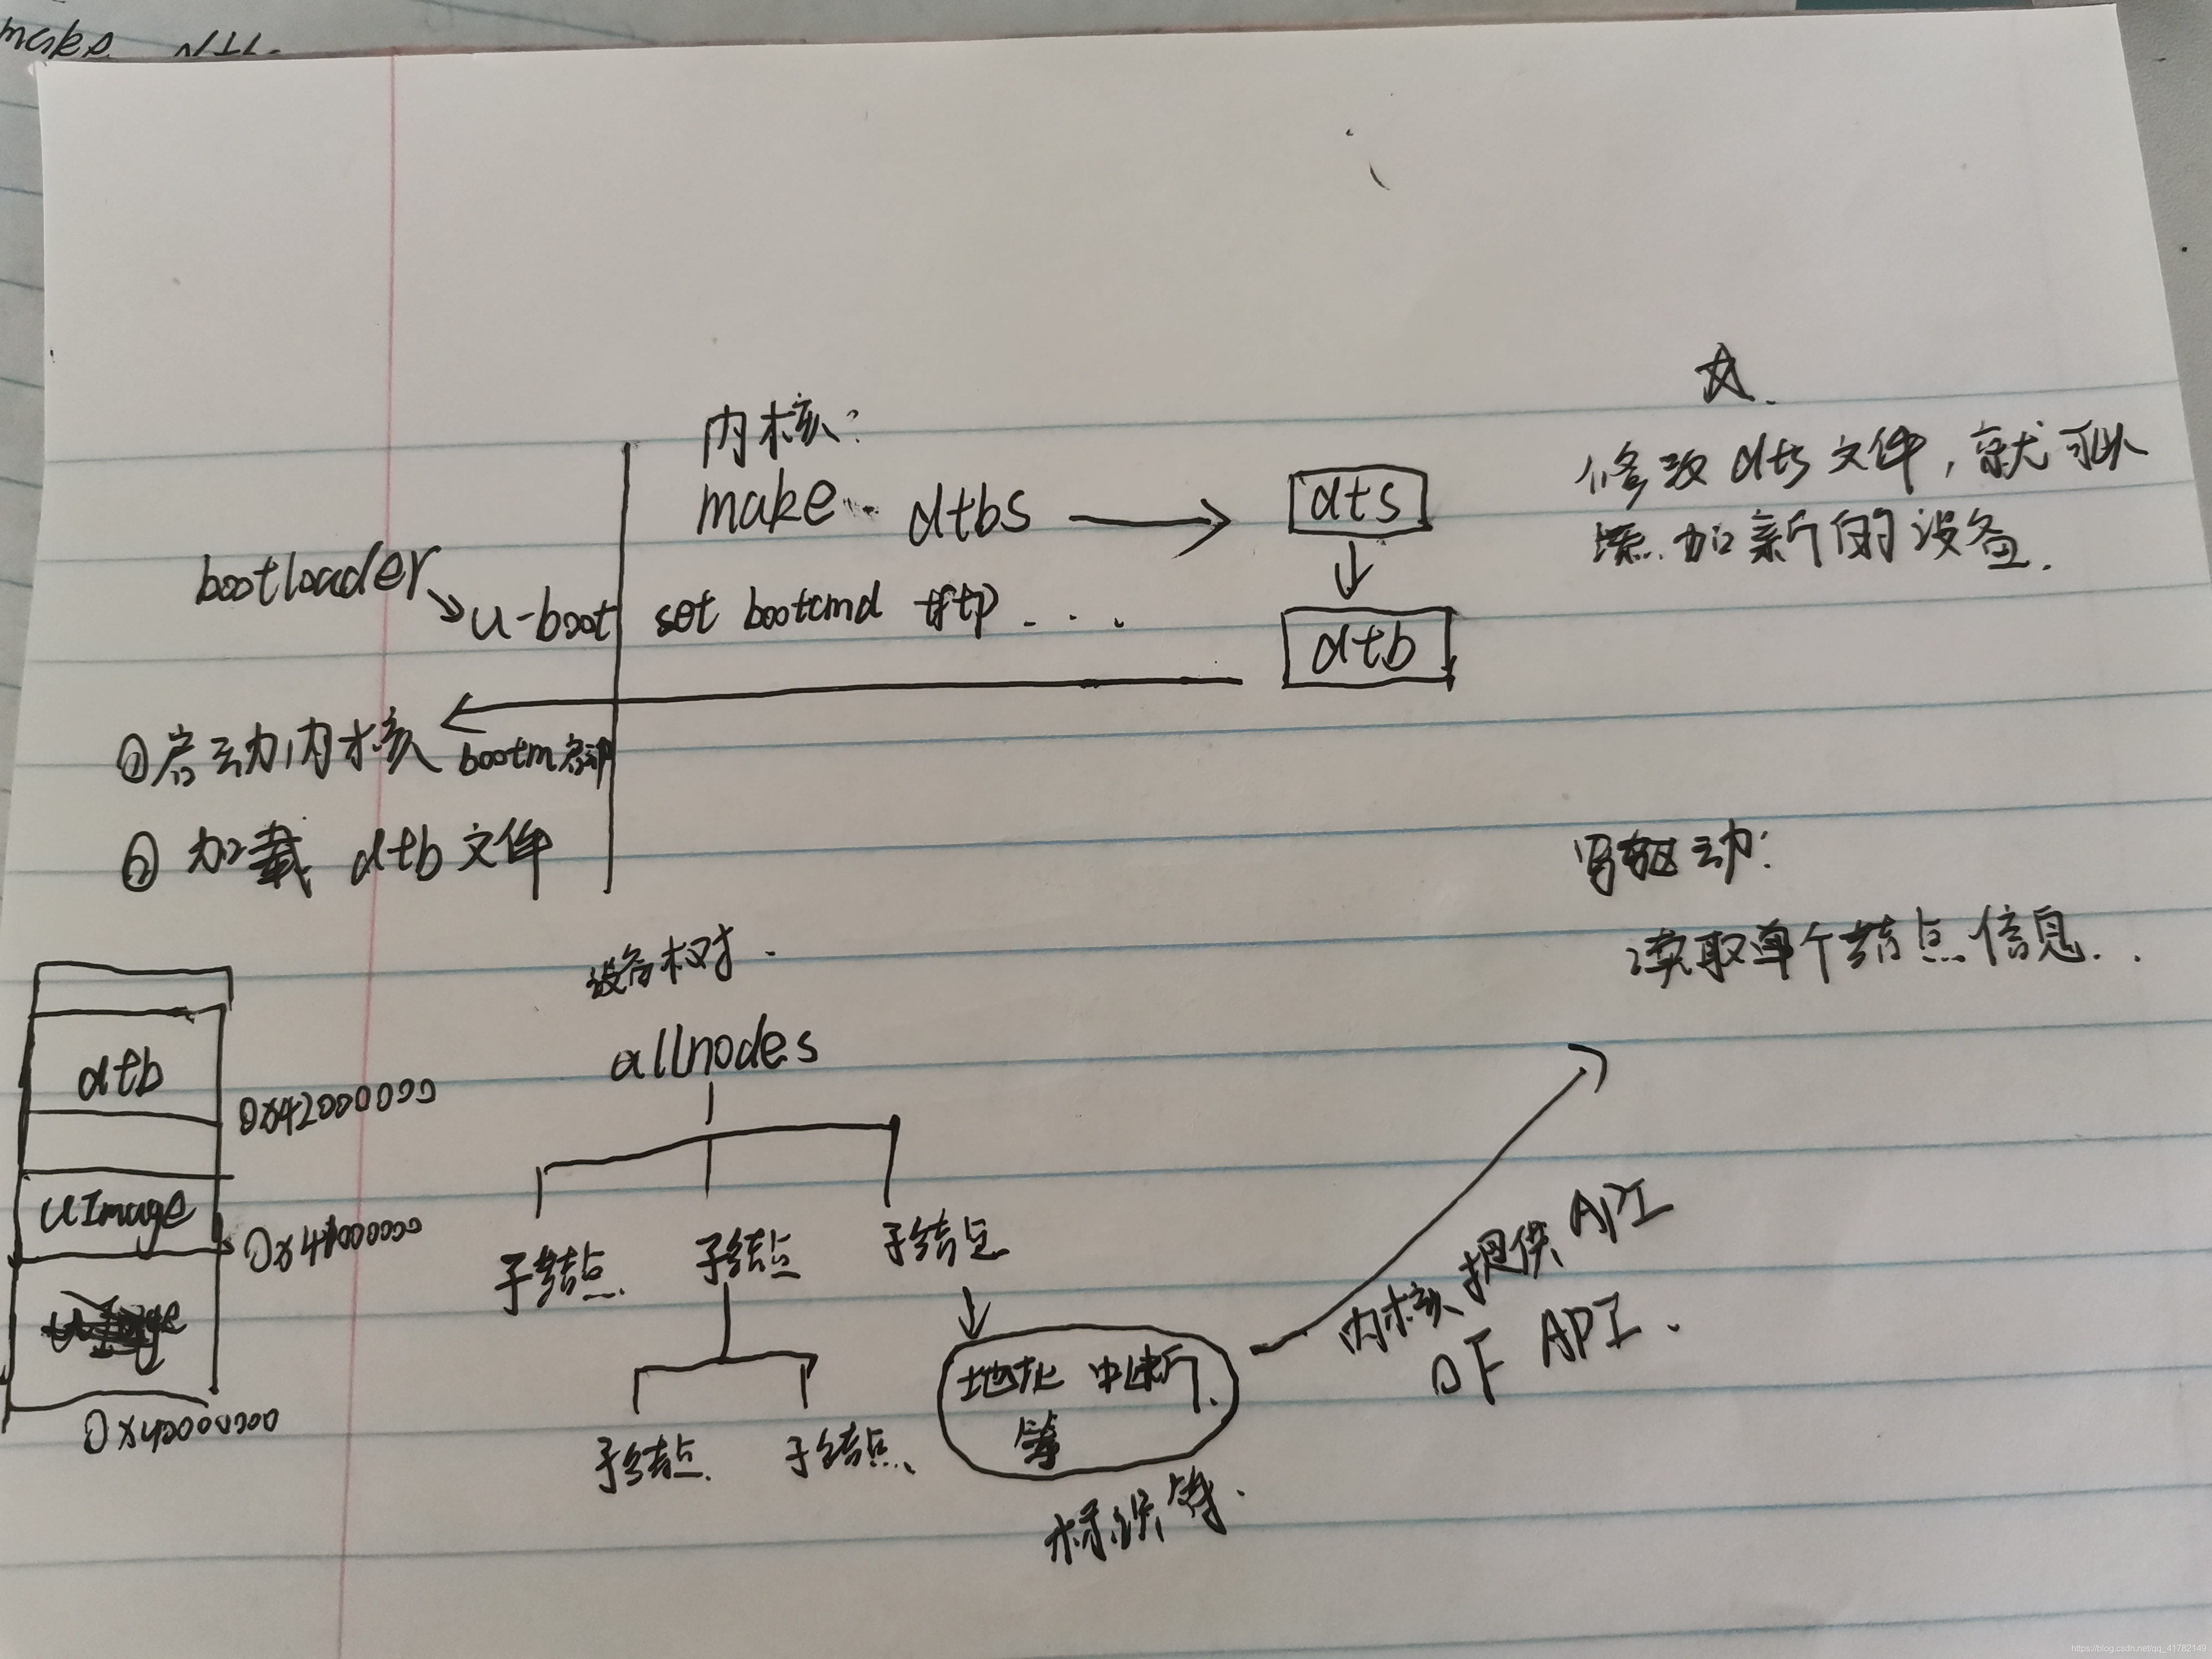 内核:
make dtbs
dts
修改 dts 文件,就可以
添加新的设备.
bootloader
u-boot
set bootcmd tftp ....
dtb
①启动内核
bootm启动
② 加载 dtb 文件
写驱动:
读取单个结点信息..
设备树.
allnodes
dtb
0x42000000
uImage
0x41000000
0x40000000
子结点.
子结点
子结点
子结点.
子结点.
地址 中断.
等
内核提供API
OF API.
https://blog.csdn.net/qq_41782149